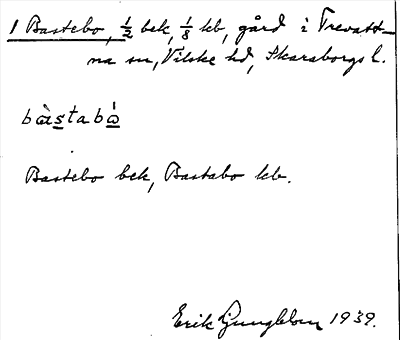 1 Bastebo, 1/2 bek, 1/8 kb, gård i Trevatt-
na sn, Vilske hd, Skaraborgs l.
bàstabò
Bastebo bek, Bastabo kb.
Erik Ljungblom 1939.